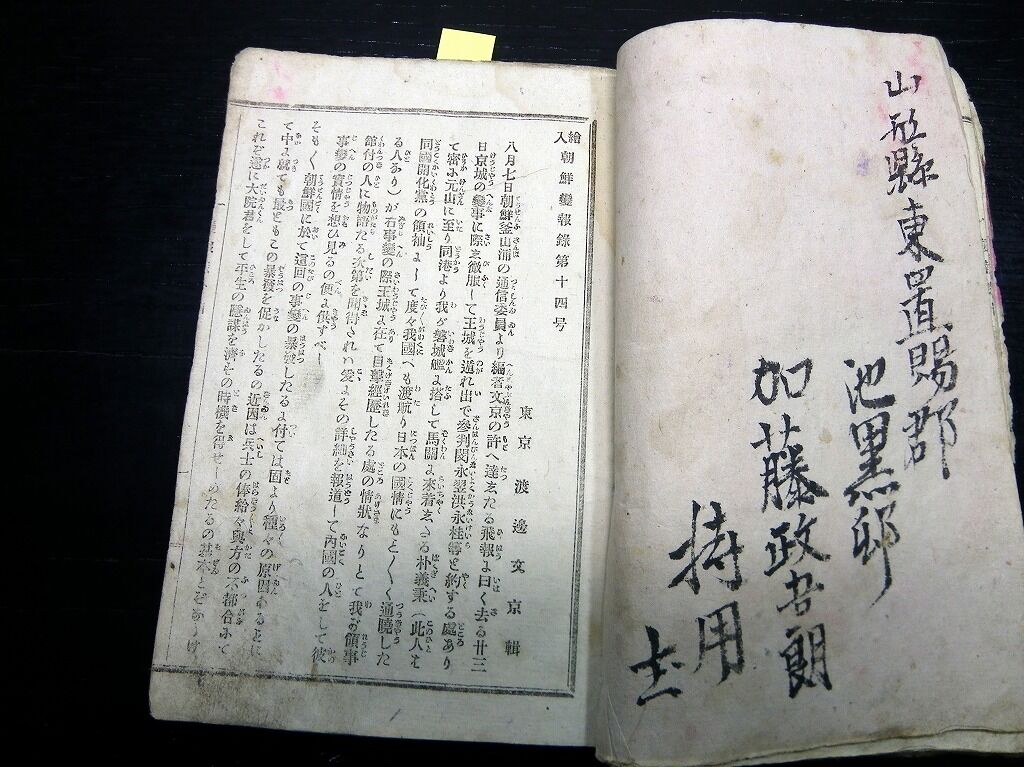 山形縣東置賜郡
池黒邨
加藤政吾朗
持用
繪入朝鮮變報錄第十四号
東京 渡邊文京輯
八月七日朝鮮釜山浦の通信委員より編者文京の許へ達ゑたる飛報よ曰く去る廿三
日京城の變事に際ゑ微服して王城を遁れ出で參判閔永翌洪永桂等と約する處あり
て審か元山に至り同港より我が磐城艦よ搭して馬關よ來着ゑたる朴義秉(此人も
同國開化黨の領袖よして度々我國へも渡航り日本の國情にもとくく通曉した
る人あり)が右事變の際王城よ在て目擊經歷したる處の情狀なりとて我が領事
館付の人に物語たる次第を聞得されバ爰よその詳細を報道して內國の人をして彼
事變の實情を想ひ見るの便よ供すべし
そもく朝鮮國に於て這回の事變の暴發したるよ付てハ固より種々の原因あるとに
て中よ就ても最ともこの暴發を促かしたるの近因は兵士の俸給々與方の不都合にて
これを遠に大院君をして平生の隱謀を濟すの時機を得せしめたるの基本とぞありけ